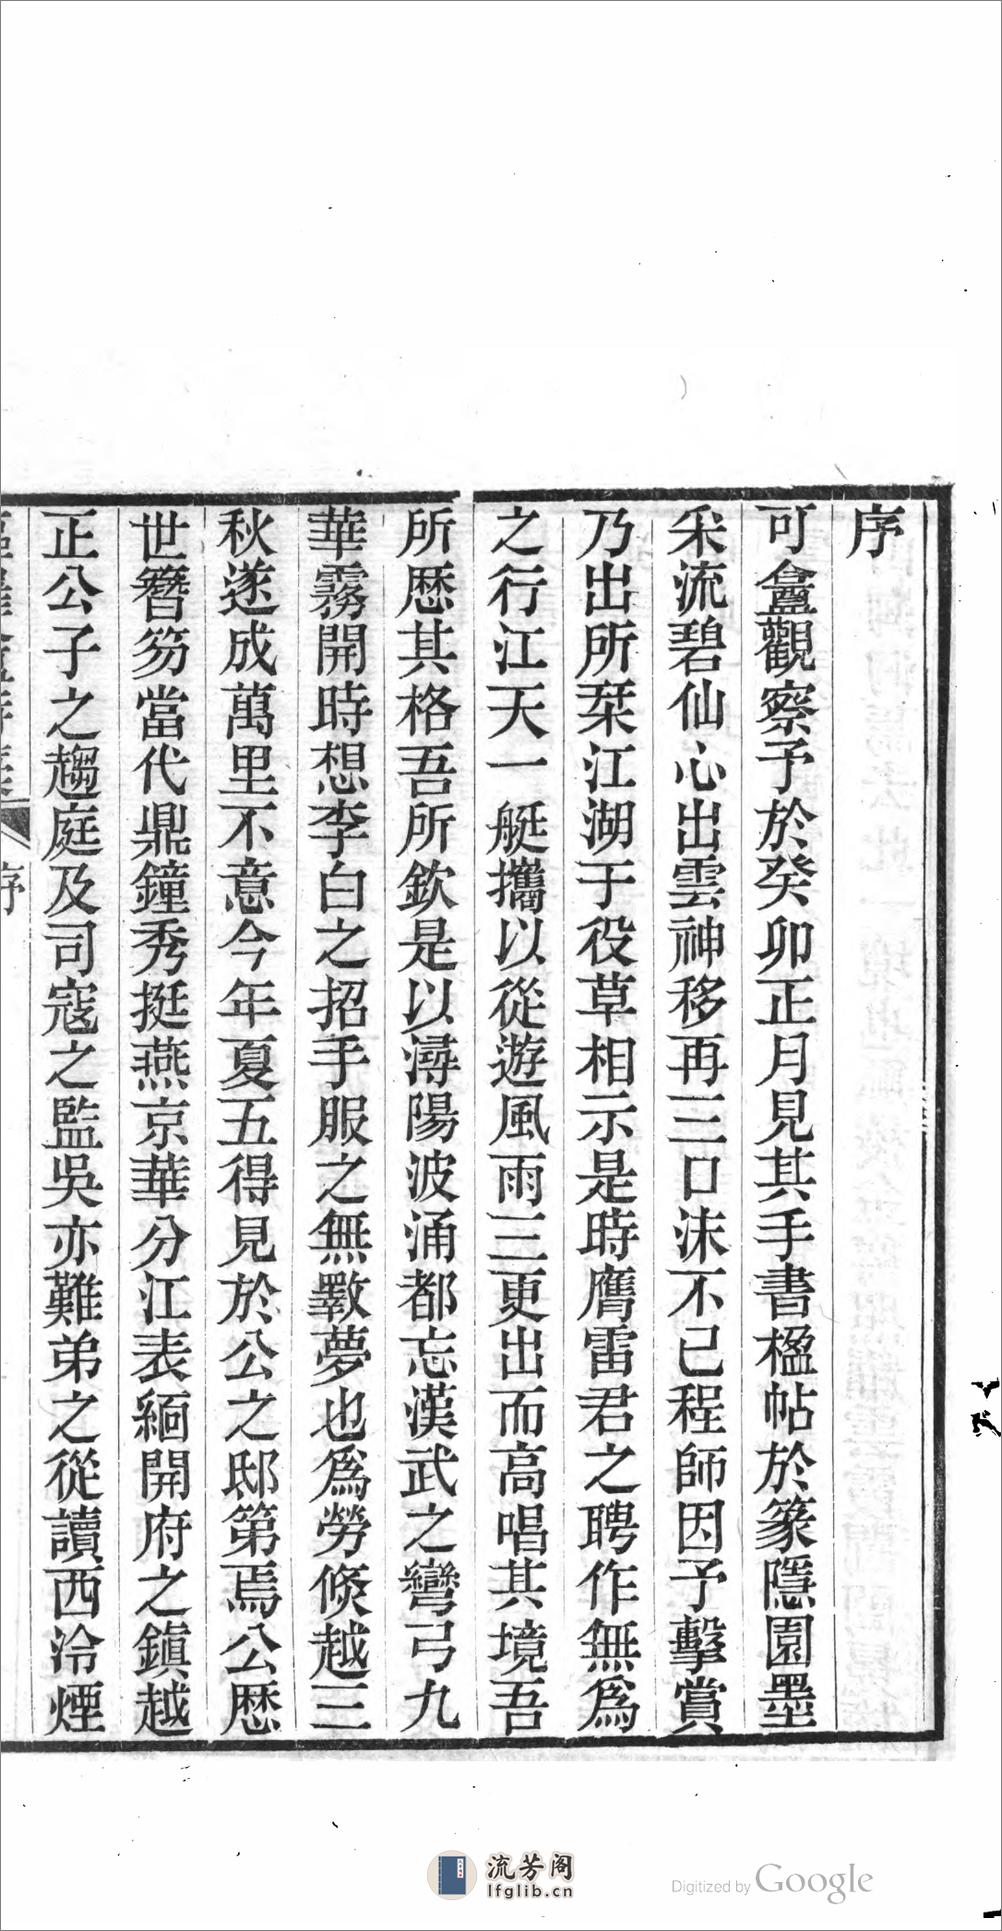 序
可盦觀察予於癸卯正月見其手書楹帖於篆隱園墨
采流碧仙心出雲神移再三口沫不已程師因予擊賞
乃出所栞江湖于役草相示是時膺雷君之聘作無為
之行江天一艇攜以從遊風雨三更出而高唱其境吾
所歷其格吾所欽是以潯陽波涌都忘漢武之彎弓九
華霧開時想李白之招手服之無斁夢也為勞倏越三
秋遂成萬里不意今年夏五得見於公之邸第焉公歷
世簪笏當代鼎鐘秀挺燕京華分江表緬開府之鎮越
正公子之趨庭及司寇之監吳亦難弟之從讀西泠煙
序
流芳阁
lfglib.cn
Digitized by Google